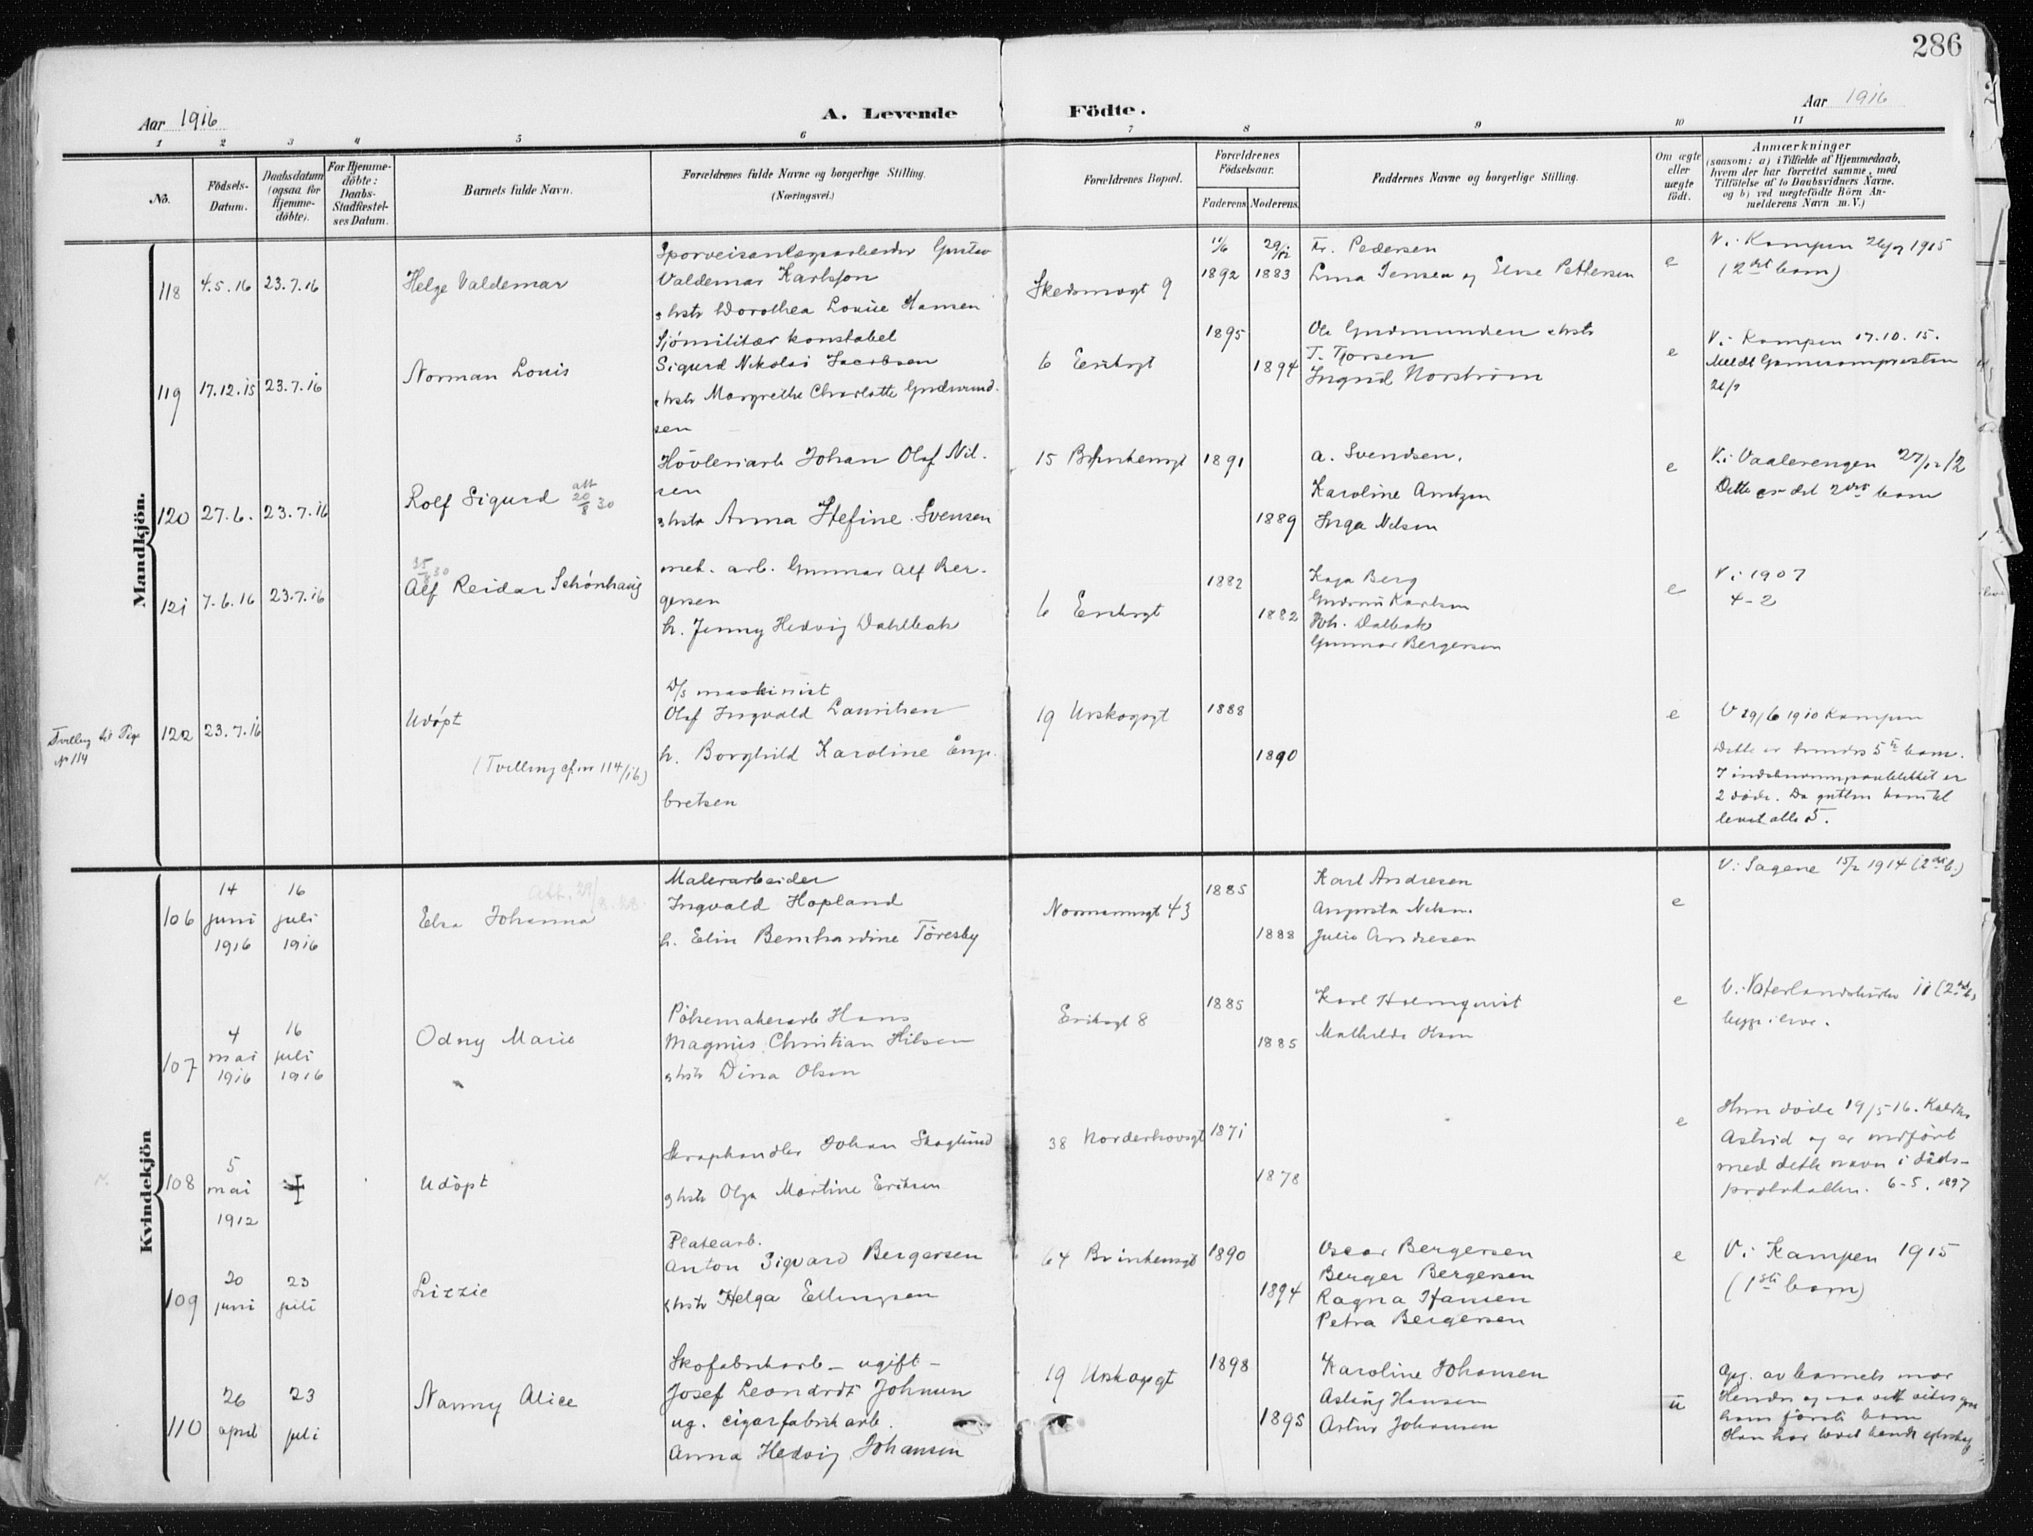 286
Aar 1916
A. Levende Födte.
Aar 1916
1 2 3 4 5 6 7 8 9 10 11
No.
Födsels-Datum.
Daabsdatum (ogsaa for Hjemme-döbte).
For Hjemme-döbte: Daabs-Stadfæstel-ses Datum.
Barnets fulde Navn.
Forældrenes fulde Navne og borgerlige Stilling.
(Næringsvei.)
Forældrenes Bopæl.
Forældrenes Födselsaar.
Faderens Moderens
Faddernes Navne og borgerlige Stilling.
Om ægte eller uægte födt.
Anmærkninger
(saasom: a) i Tilfælde af Hjemmedaab,
hvem der har forrettet samme, med
Tilföielse af to Daabsvidners Navne.
og b) ved uægtefödte Börn An-
melderens Navn m. V.)
Mandkjön.
118 4.5.16 23.7.16 Helge Valdemar
Gustav
Valdemar Karlsson
hstr Dorothea Louise Hansen
Skedsmogt 9
11/6 1892 29/12 1883
Fr. Pedersen
Lina Jensen og Else Pettersen
e
V. i Kampen 1915
(2det barn)
119 17.12.15 23.7.16 Norman Louis
Sjømilitær konstabel
Sigurd Nikolai Jacobsen
hstr Margrethe Charlotte Gudmund-
sen
6 Eriksgt
1895 1894
Ole Gudmundsen
T. Torsen
Ingrid Norstrøm
e
V. i Kampen 17.10.15.
120 27.6. 23.7.16 Rolf Sigurd
att 20/8 30
Høvleriarb Johan Olaf Nil-
sen
hstr Anna Stefine Svensen
15 Brinkensgt
1891 1889
A. Svendsen.
Karoline Arntzen
Inga Nilsen
e
V. i Vaalerengen 27/12 12
Dette er det 2det barn
121 7.6.16 23.7.16 Alf Reidar Schönhaug
mek. arb. Gunnar Alf Ber-
gersen
h. Jenny Hedvig Dahlbak
6 Eriksgt
1882 1882
Kaja Berg
Gudrun Karlsen
Joh. Dalbak
Gunnar Bergersen
e
V. i 1907
4-2
Tvilling til Pige
No 114
122 23.7.16 Udöpt
(Tvilling cf nr 114/16)
D/S maskinist
Olaf Ingvald Lauritsen
h. Borghild Karoline Enge-
bretsen
19 Urskogsgt
1888 1890
e
V 29/6 1910 Kampen
Dette er hendes 5te barn.
2 døde. Da gutten kom til
levet alle 5.
Kvindekjön
106 14 juni 1916 16 juli 1916 Elsa Johanna
Malerarbeider
Ingvald Hopland
h. Elin Bernhardine Töresby
Normannsgt 43
1885 1888
Karl Andresen
Augusta Nilsen.
Julie Andresen
e
V. i Sagene 15/2 1914 (2det b.)
107 4 mai 1916 16 juli 1916 Odny Marie
Pölsemakerarb Hans
Magnus Christian Hilsen
hstr Dina Olsen
Eriksgt 8
1885 1885
Karl Holmqvist
Mathilde Olsen
e
108 5 mai 1912 Udöpt
Skraphandler Johan Skoglund
hstr Olga Martine Eriksen
38 Norderhovsgt
1871 1878
e
Hun døde 19/5-16. Kaldtes
Astrid og er indført
med dette navn i døds-
protokollen. 6-5. 1897
109 20 juni 23 juli Lizzie
Platearb.
Anton Sigvard Bergersen
hstr Helga Ellingsen
64 Brinkensgt
1890 1894
Oscar Bergersen
Berger Bergersen
Ragna Hansen
Petra Bergersen
e
V. i Kampen 1915
(1ste barn)
110 26 april 23 juli Nanny Alice
Skofabrikarb - ugift -
Josef Leonardt Johnsen
ug. cigarfabrik arb.
Anna Hedvig Johansen
19 Urskogsgt
1898 1895
Karoline Johansen
Aslaug Hansen
Artur Johansen
u
Opg. av barnets mor